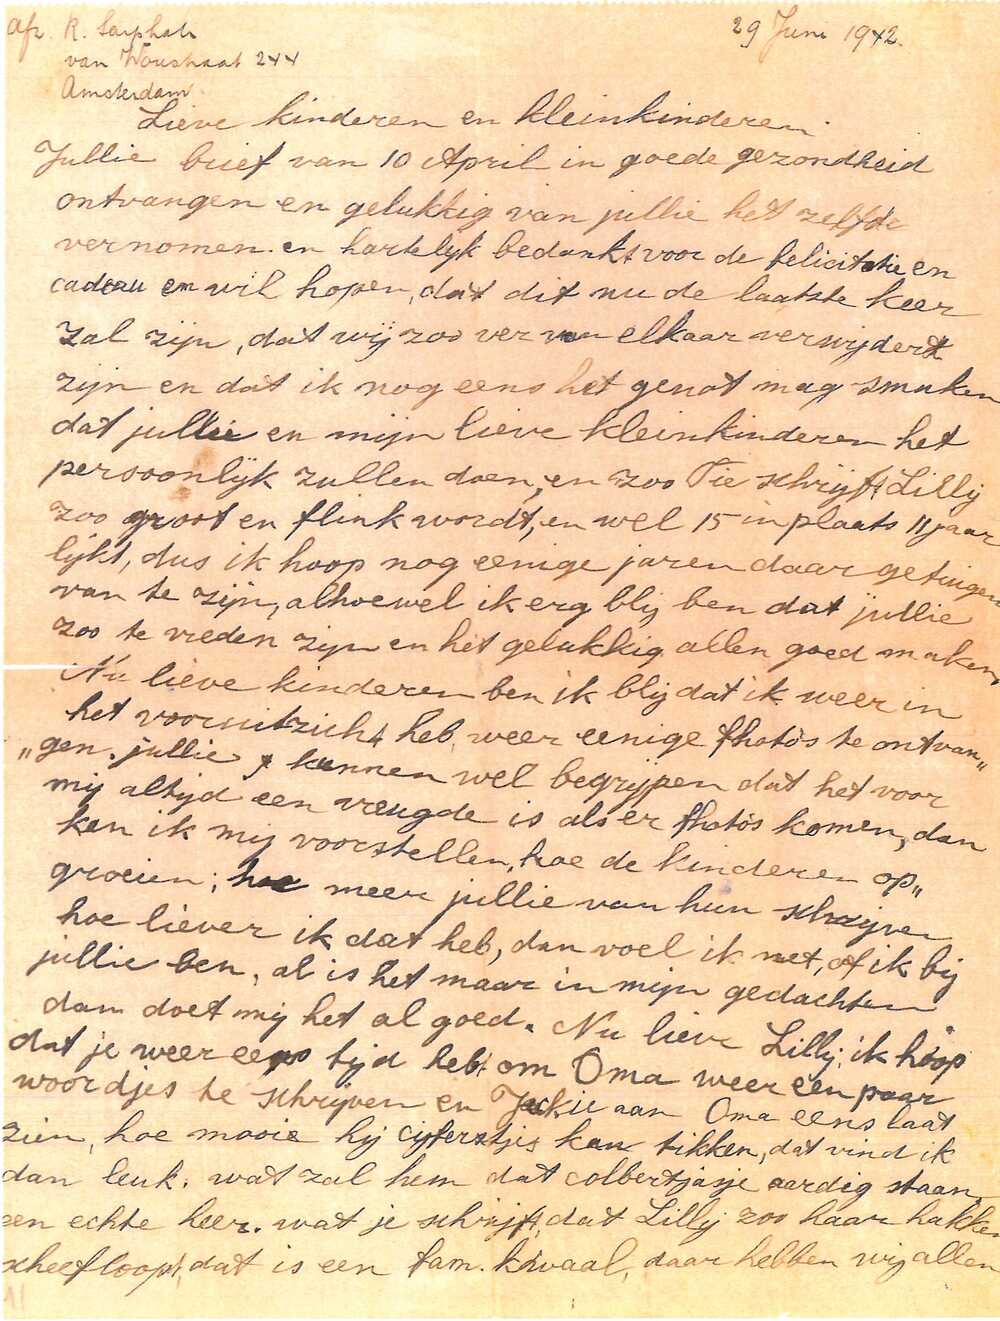 afz. R. Sarphati
van Woustraat 244
Amsterdam
29 Juni 1942.
Lieve kinderen en kleinkinderen.
Jullie brief van 10 April in goede gezondheid
ontvangen en gelukkig van jullie het zelfde
vernomen. en hartelijk bedankt voor de felicitatie en
cadeau en wil hopen, dat dit nu de laatste keer
zal zijn, dat wij zoo ver van elkaar verwijdert
zijn en dat ik nog eens het genot mag smaken
dat jullie en mijn lieve kleinkinderen het
persoonlijk zullen doen, en zoo Fie schrijft Lilly
zoo groot en flink wordt, en wel 15 in plaats 11 jaar
lijkt, dus ik hoop nog eenige jaren daar getuigen
van te zijn, alhoewel ik erg blij ben dat jullie
zoo te vreden zijn en het gelukkig allen goed maken,
Nu lieve kinderen ben ik blij dat ik weer in
het vooruitzicht heb, weer eenige photo's te ontvan„
„gen. jullie kunnen wel begrijpen dat het voor
mij altijd een vreugde is als er photos komen, dan
kan ik mij voorstellen, hoe de kinderen op„
groeien; hoe meer jullie van hun schrijven
hoe liever ik dat heb, dan voel ik net, of ik bij
jullie ben, al is het maar in mijn gedachten
dan doet mij het al goed. Nu lieve Lilly, ik hoop
dat je weer eens tijd hebt om Oma weer een paar
woordjes te schrijven en Jackie aan Oma eens laat
zien, hoe mooie hij cijfertjes kan tikken, dat vind ik
dan leuk. wat zal hem dat colbertjasje aardig staan,
een echte heer. wat je schrijft, dat Lilly zoo haar hakken
scheef loopt, dat is een fam. kwaal, daar hebben wij allen